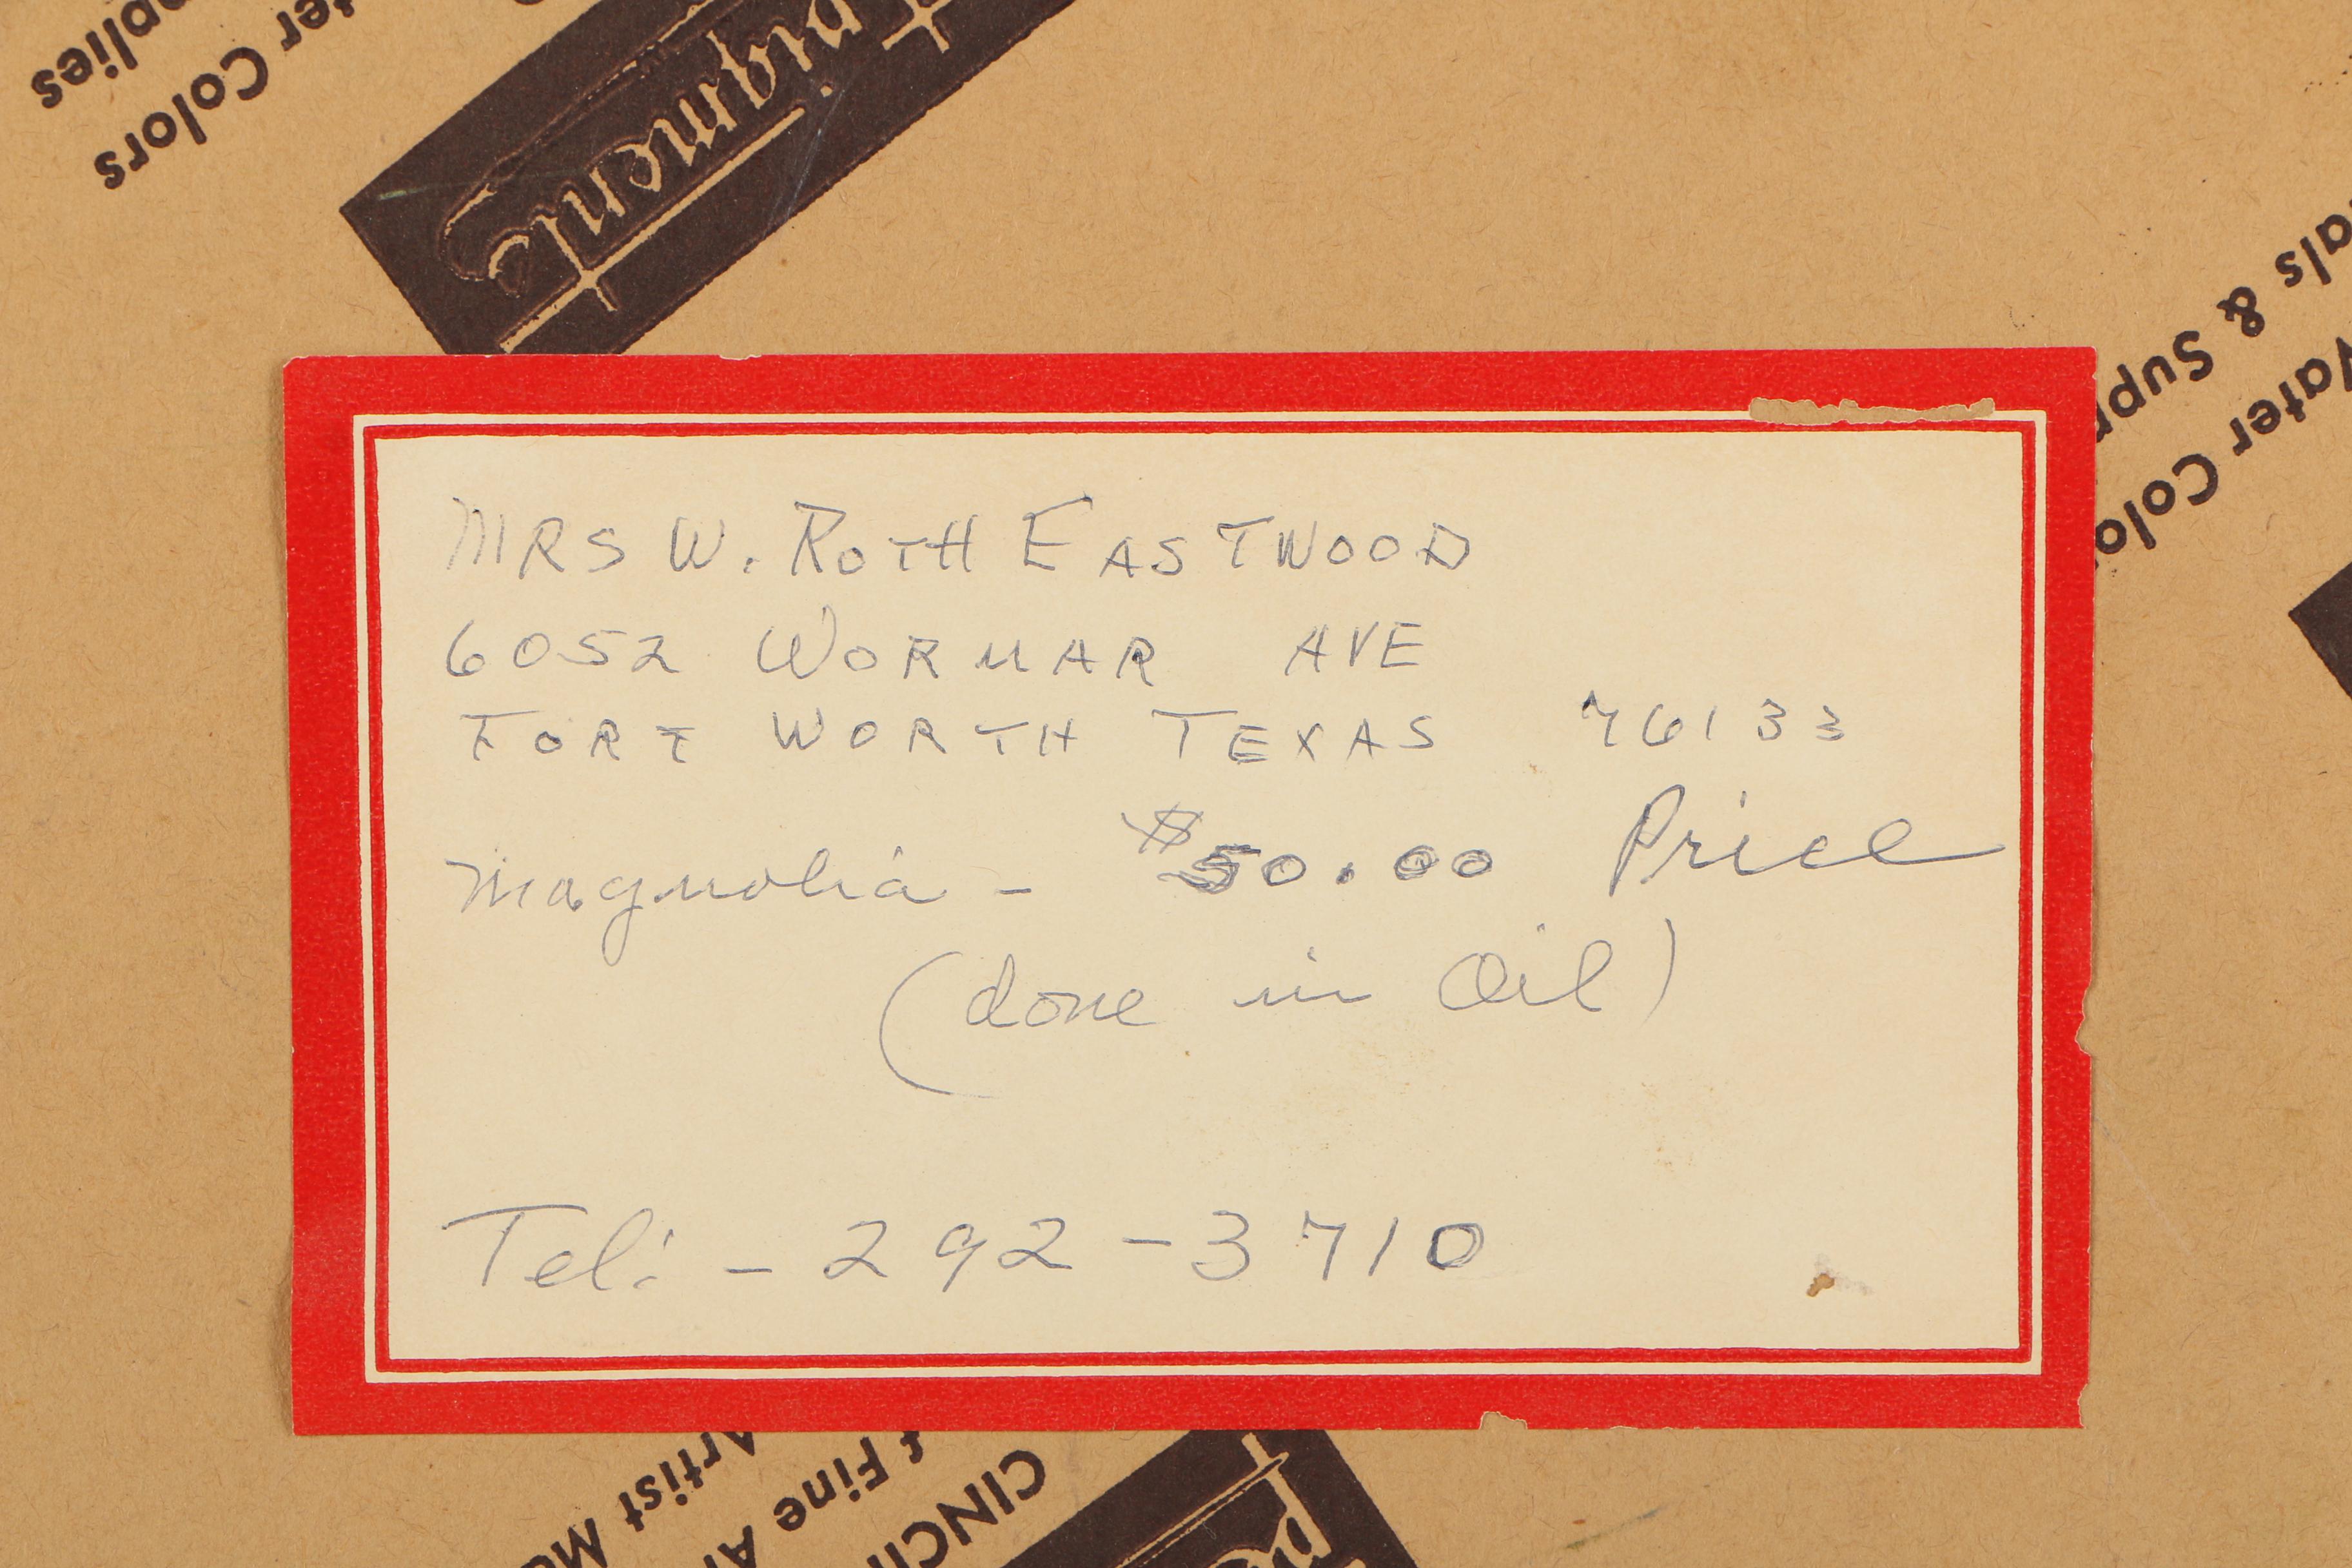 er Colors
plies
pigments
als & Supp
Water Colo
MRS W. ROTH EASTWOOD
6052 WORMAR AVE
FORT WORTH TEXAS 76133
Magnolia - $50.00 Price
(done in Oil)
Tel: - 292-3710
CINCI
f Fine Ar
Artist Ma